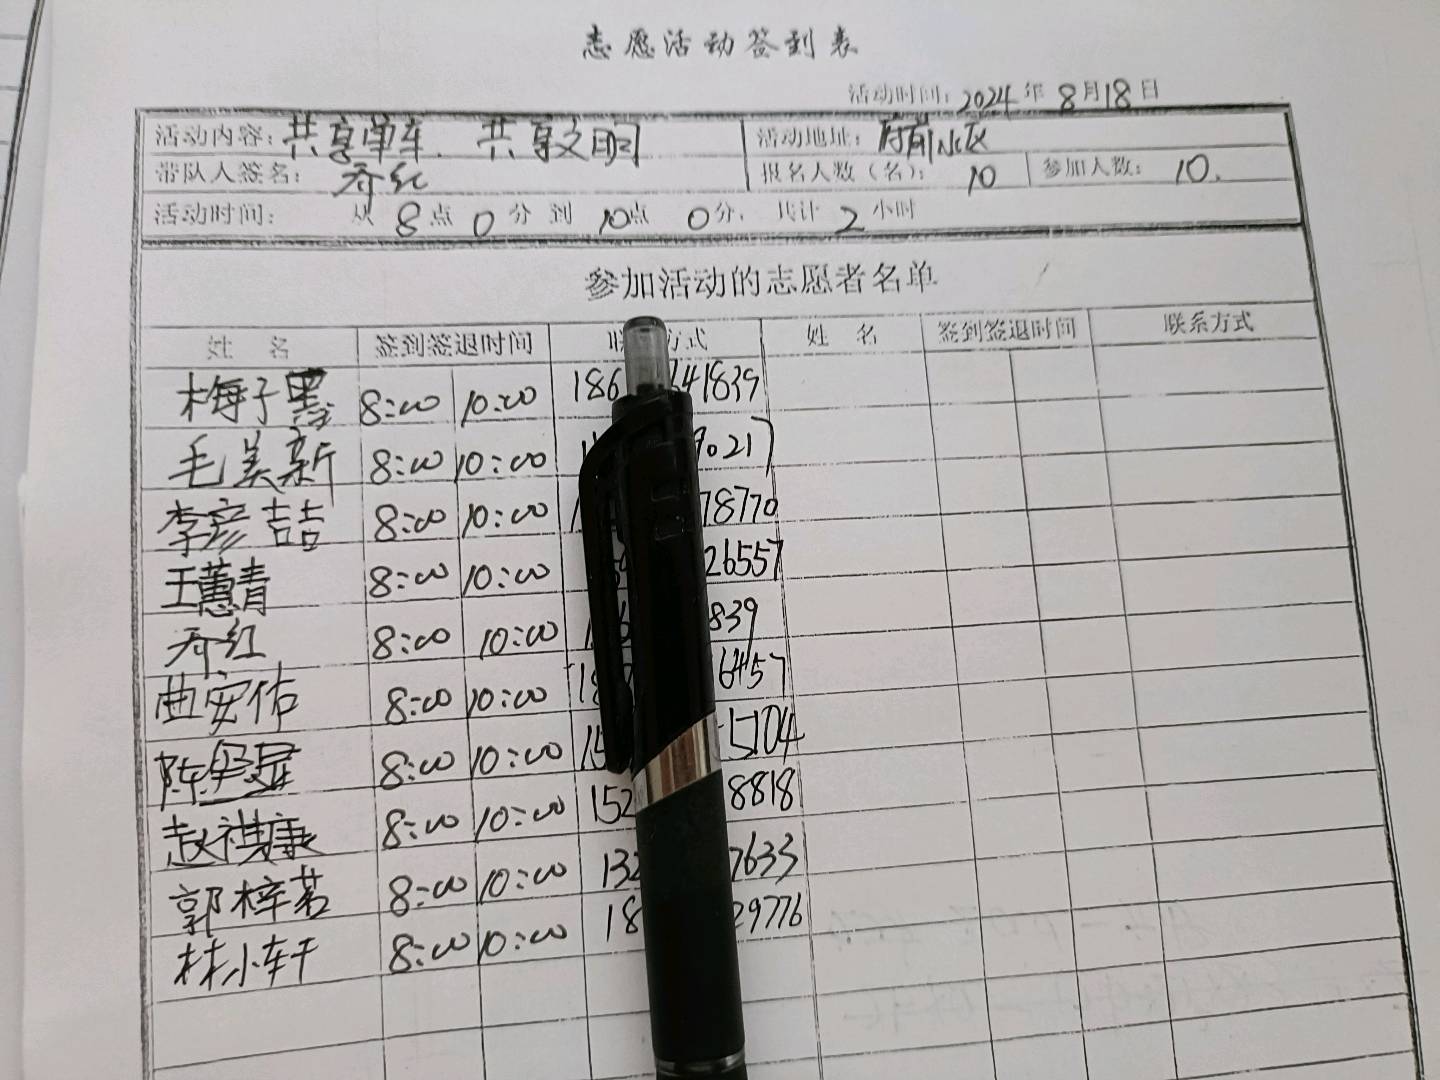 志愿活动签到表
活动时间: 2024 年 8月18日
活动内容: 共享单车、共享文明 活动地址: 府前小区
带队人签名: 乔红 报名人数(名): 10 参加人数: 10.
活动时间: 从 8 点 0 分 到 10点 0分, 共计 2 小时
参加活动的志愿者名单
姓 名 签到签退时间 方式 姓 名 签到签退时间 联系方式
梅子黑 8:00 10:00 186 41839
毛美新 8:00 10:00 90217
李彦喆 8:00 10:00 78770
王蕙青 8:00 10:00 26557
乔红 8:00 10:00 839
曲安佑 8:00 10:00 6457
陈 8:00 10:00 15104
赵祺康 8:00 10:00 152 8818
郭梓茗 8:00 10:00 132 7633
林小轩 8:00 10:00 18 29776